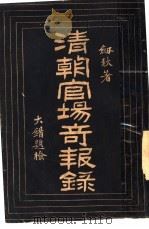 紉秋著
清朝官場奇報錄
大錯題檢